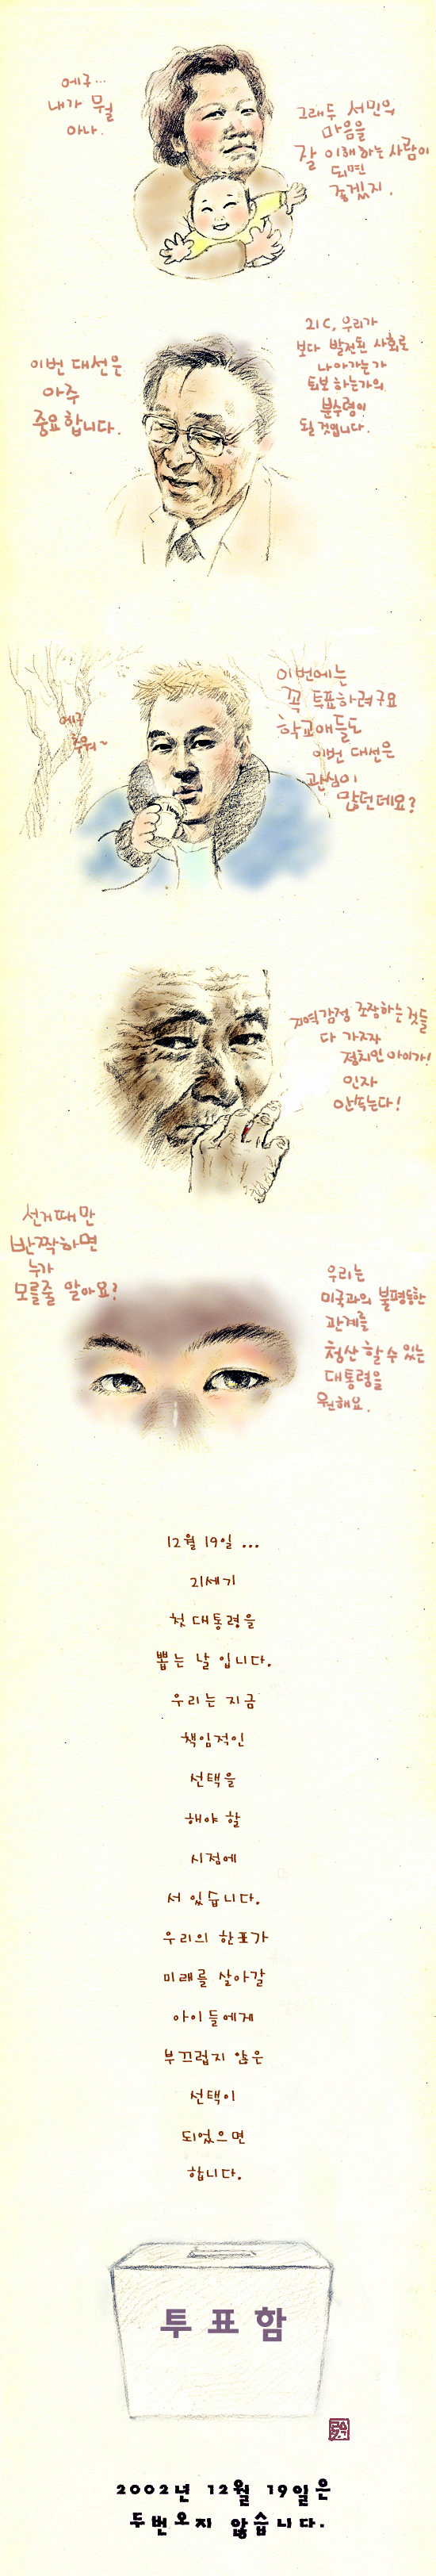 에구...
내가 뭘
아나.
그래두 서민의
마음을
잘 이해하는 사람이
되면
좋겠지.
이번 대선은
아주
중요합니다.
21C, 우리가
보다 발전된 사회로
나아가는가
퇴보하는가의
분수령이
될 것입니다.
에구
추워~
이번에는
꼭 투표하려구요
학교애들도
이번 대선은
관심이
많던데요?
지역감정 조장하는 것들
다 가짜
정치인 아이가!
인자
안속는다!
선거때만
반짝하면
누가
모를줄 알아요?
우리는
미국과의 불평등한
관계를
청산할 수 있는
대통령을
원해요.
12월 19일 ...
21세기
첫 대통령을
뽑는 날 입니다.
우리는 지금
책임적인
선택을
해야 할
시점에
서 있습니다.
우리의 한표가
미래를 살아갈
아이들에게
부끄럽지 않은
선택이
되었으면
합니다.
투표함
2002년 12월 19일은
두번오지 않습니다.